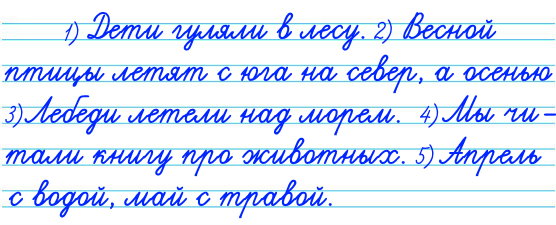 1) Дети гуляли в лесу. 2) Весной
птицы летят с юга на север, а осенью
3) Лебеди летели над морем. 4) Мы чи-
тали книгу про животных. 5) Апрель
с водой, май с травой.